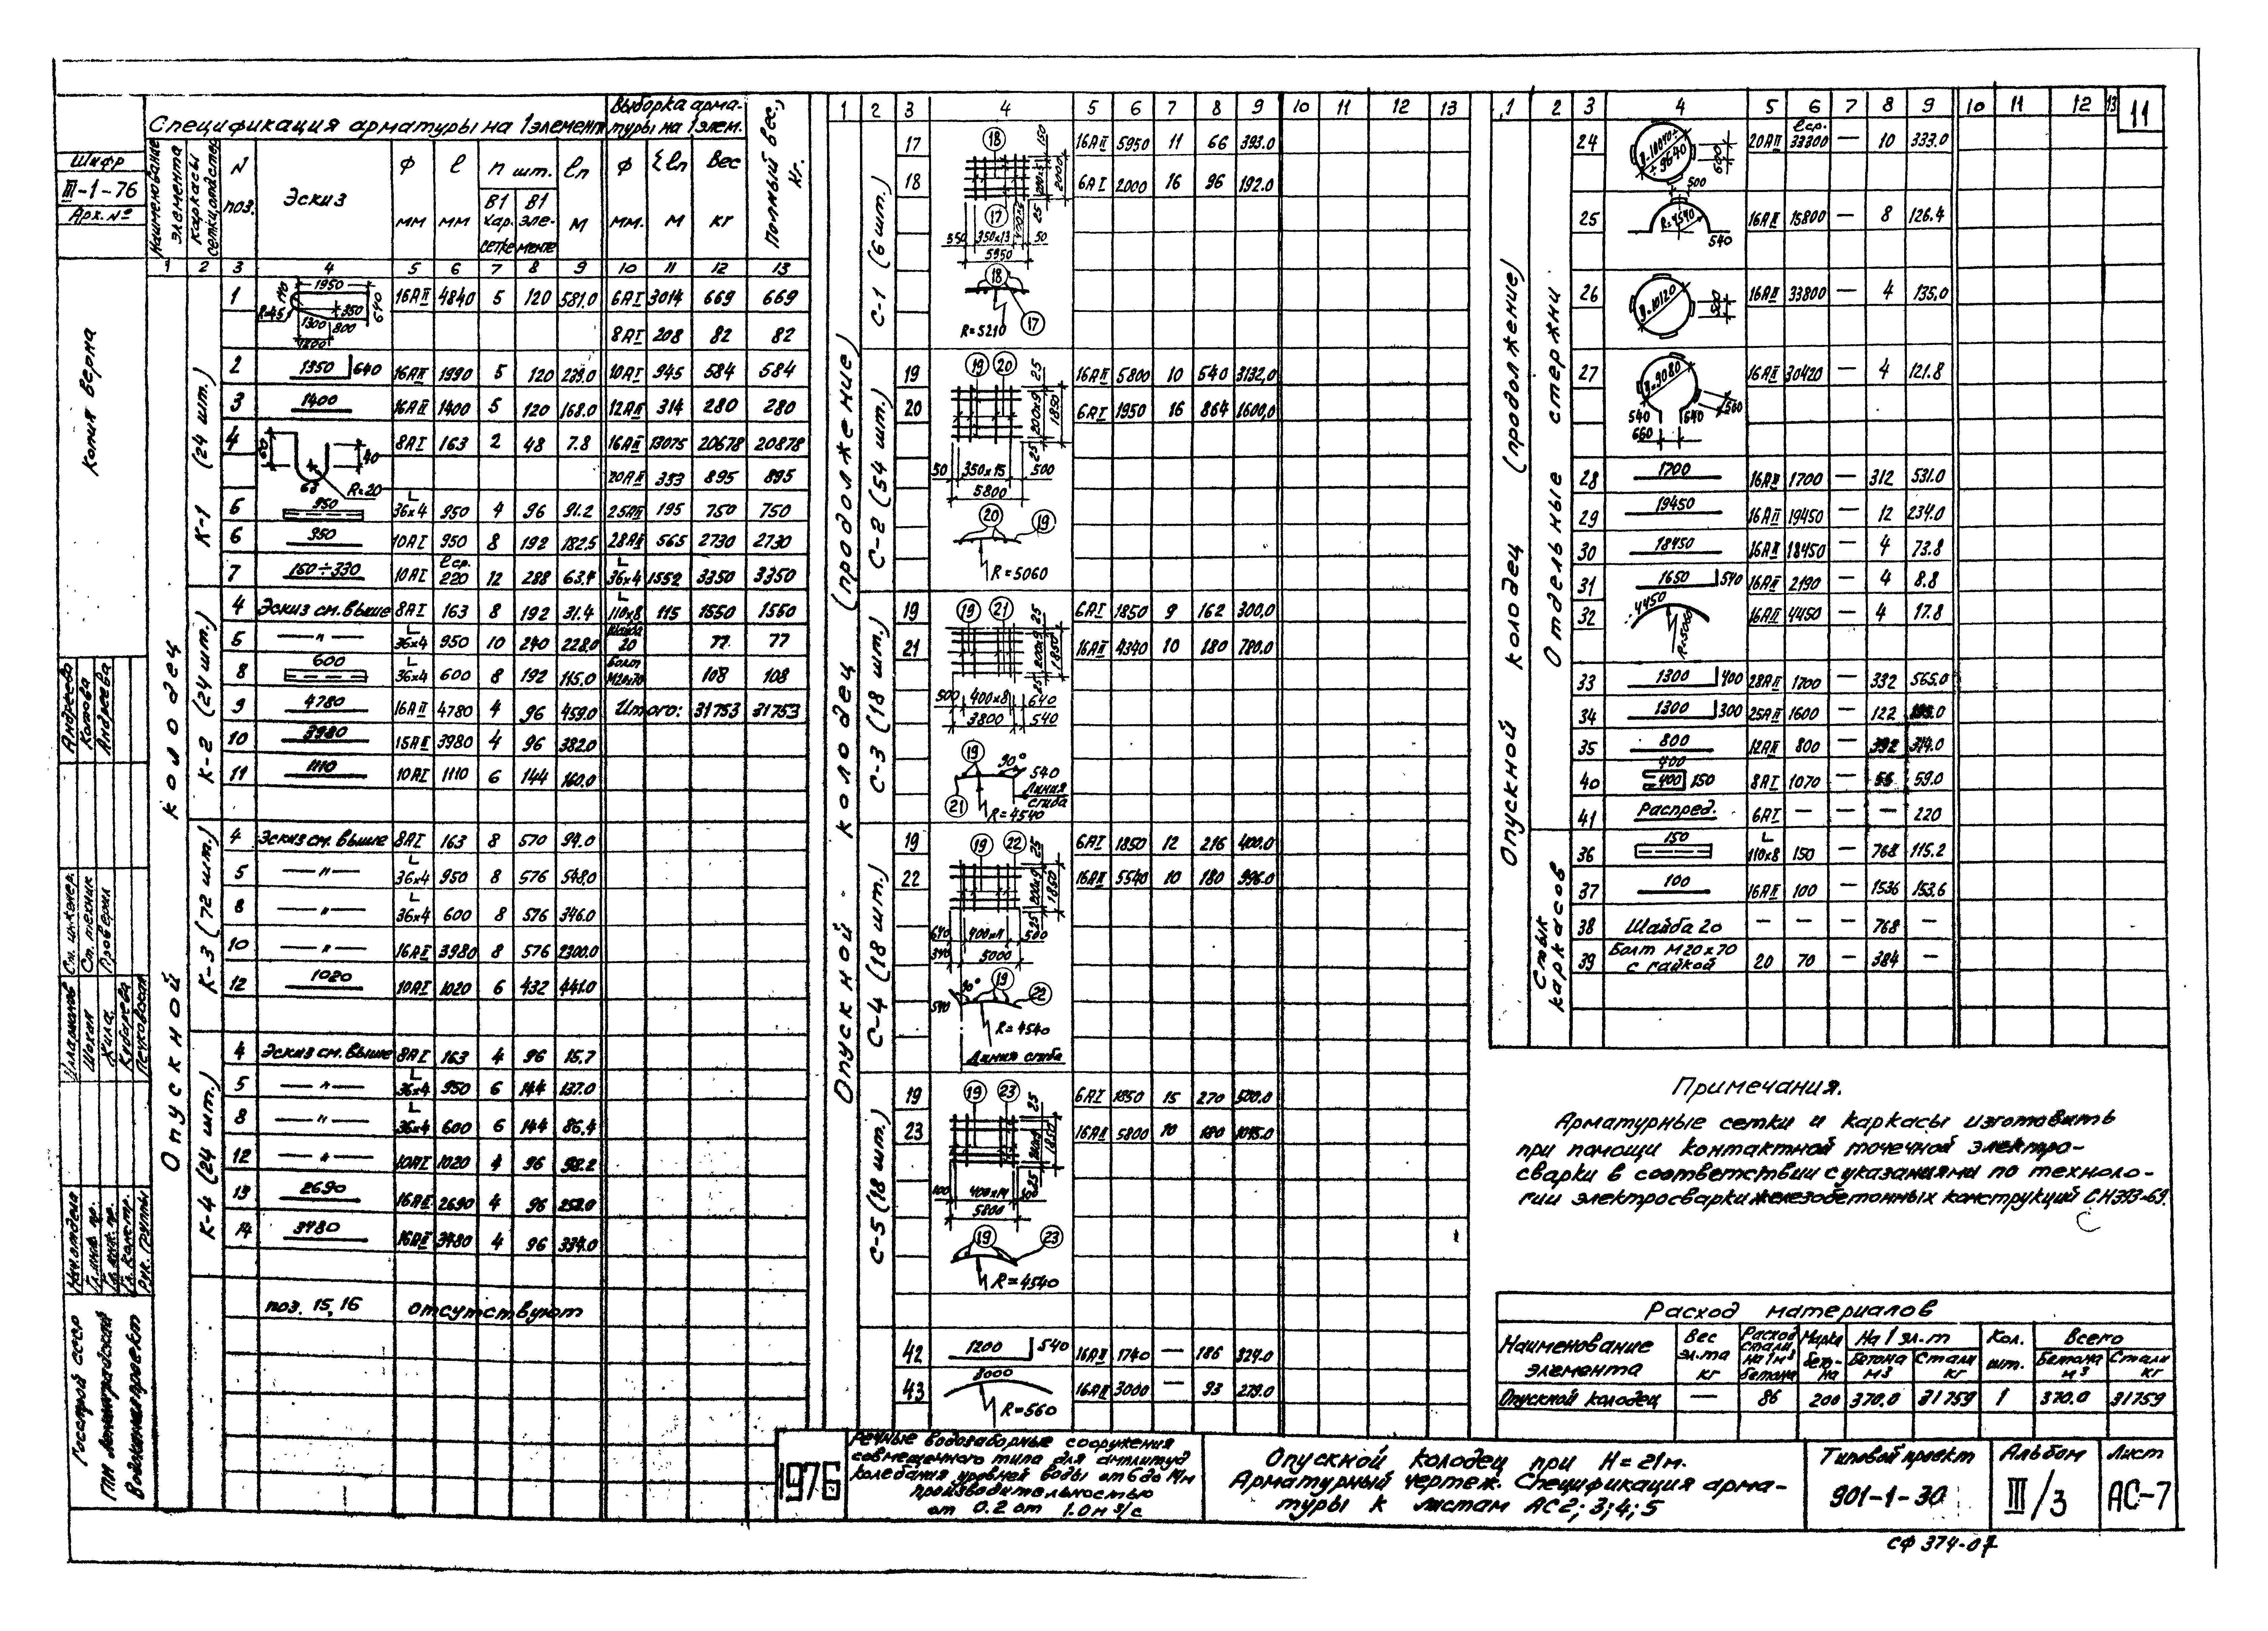 11
Шифр
III-1-76
Арх. №
Копия верна
Спецификация арматуры на 1 элемент
Выборка арматуры на 1 элем.
Полный вес, кг.
Наименование элемента
Каркасы сетки, отд. стер.
N поз.
Эскиз
ф мм
ℓ мм
n шт.
В 1 кар. сетке
В 1 элементе
ℓn м
ф мм.
Σℓn м
Вес кг
1 2 3 4 5 6 7 8 9 10 11 12 13
Опускной колодец
К-1 (24 шт.)
1 16АII 4840 5 120 581.0 6АI 3014 669 669
1950 640 350 1300 800
8АI 208 82 82
2 1350 640 16АII 1990 5 120 239.0 10АI 945 584 584
3 1400 16АII 1400 5 120 168.0 12АII 314 280 280
4 8АI 163 2 48 7.8 16АII 13075 20678 20878
40 R=20
20АII 333 895 895
5 950 L 36х4 950 4 96 91.2 25АII 195 750 750
6 950 10АI 950 8 192 182.5 28АII 565 2730 2730
7 150÷330 10АI ℓср. 220 12 288 63.4 L 36х4 1552 3350 3350
К-2 (24 шт.)
4 Эскиз см. выше 8АI 163 8 192 31.4 L 110х8 115 1550 1550
5 —"— L 36х4 950 10 240 228.0 Шайба 20 77 77
8 600 L 36х4 600 8 192 115.0 Болт М20х70 108 108
9 4780 16АII 4780 4 96 459.0 Итого: 31753 31753
10 3980 3980 4 96 382.0
11 1110 10АI 1110 6 144 160.0
К-3 (72 шт.)
4 Эскиз см. выше 8АI 163 8 570 94.0
5 —"— L 36х4 950 8 576 548.0
8 —"— 36х4 600 8 576 346.0
10 —"— 16АII 3980 8 576 2300.0
12 1020 10АI 1020 6 432 441.0
К-4 (24 шт.)
4 Эскиз см. выше 8АI 163 4 96 15.7
5 —"— L 36х4 950 6 144 137.0
8 —"— L 36х4 600 6 144 86.4
12 —"— 10АI 1020 4 96 98.2
13 2690 16АII 2690 4 96 258.0
14 3480 16АII 3480 4 96 334.0
поз. 15, 16 отсутствуют
1 2 3 4 5 6 7 8 9 10 11 12 13
Опускной колодец (продолжение)
С-1 (6 шт.)
17 16АII 5950 11 66 393.0
18 6АI 2000 16 96 192.0
18 150 2000 25
17 350х13 50
5950
18 17 R=5210
С-2 (54 шт.)
19 16АII 5800 10 540 3132,0
20 6АI 1950 16 864 1600,0
19 20 25 200х9 1850 25
50 350х15 500
5800
20 19
R=5060
С-3 (18 шт.)
19 6АI 1850 9 162 300.0
21 16АII 4340 10 180 780.0
19 21 25 200х9 1850
500 400х8 640
3800 540
19 90° 540
21 Линия сгиба
R=4540
С-4 (18 шт.)
19 6АI 1850 12 216 400.0
22 16АII 5540 10 180 996.0
19 22 25 200х9 1850 25
640 400х11 500
340 5000
90° 19 22 540
R=4540
Линия сгиба
С-5 (18 шт.)
19 6АI 1850 15 270 500.0
23 16АII 5800 10 180 1045.0
19 23 25 200х9 1850 25
100 400х14
5800
19 23
R=4540
42 1200 540 16АII 1740 — 186 324.0
43 3000 R=560 16АII 3000 — 93 279.0
1 2 3 4 5 6 7 8 9 10 11 12 13
Опускной колодец (продолжение)
Отдельные стержни
24 20АII ℓср. 33300 — 10 333.0
÷9640 600 500
25 R=4540 540 16АII 15800 — 8 126.4
26 D=10120 500 16АII 33800 — 4 135.0
27 D=9080 16АII 30420 — 4 121.8
540 640 500
660
28 1700 16АII 1700 — 312 531.0
29 19450 16АII 19450 — 12 234.0
30 18450 16АII 18450 — 4 73.8
31 1650 540 16АII 2190 — 4 8.8
32 4450 16АII 4450 — 4 17.8
33 1300 400 28АII 1700 — 332 565.0
34 1300 300 25АII 1600 — 122
35 800 12АII 800 — 392 314.0
40 400 400 150 8АI 1070 — 55 59.0
41 Распред. 6АI — — — 220
Стык каркасов
36 150 L 110х8 150 — 768 115.2
37 100 16АII 100 — 1536 153.6
38 Шайба 20 — — — 768 —
39 Болт М20х70 с гайкой 20 70 — 384 —
Примечания.
Арматурные сетки и каркасы изготовить
при помощи контактной точечной электро-
сварки в соответствии с указаниями по техноло-
гии электросварки железобетонных конструкций СН393-69.
Расход материалов
Наименование элемента
Вес эл.та кг
Расход стали на 1м³ бетона
Марка бетона
На 1 эл-т
Бетона м³
Стали кг
Кол. шт.
Всего
Бетона м³
Стали кг
Опускной колодец — 86 200 370.0 31759 1 370.0 31759
Андреева
Котова
Андреева
Ст. инженер.
Ст. техник
Проверил
Шохан
Жила
Кибарева
Нач. отдела
Гл. инж. пр.
Гл. констр.
Рук. группы
Госстрой СССР
ГПИ Ленинградский
Водоканалпроект
1976
Речные водозаборные сооружения
совмещенного типа для амплитуд
колебания уровней воды от 6 до 14м
производительностью
от 0.2 от 1.0м³/с
Опускной колодец при Н=21м.
Арматурный чертеж. Спецификация арма-
туры к листам АС2; 3; 4; 5
Типовой проект
901-1-30
Альбом
III/3
Лист
АС-7
СФ 374-07